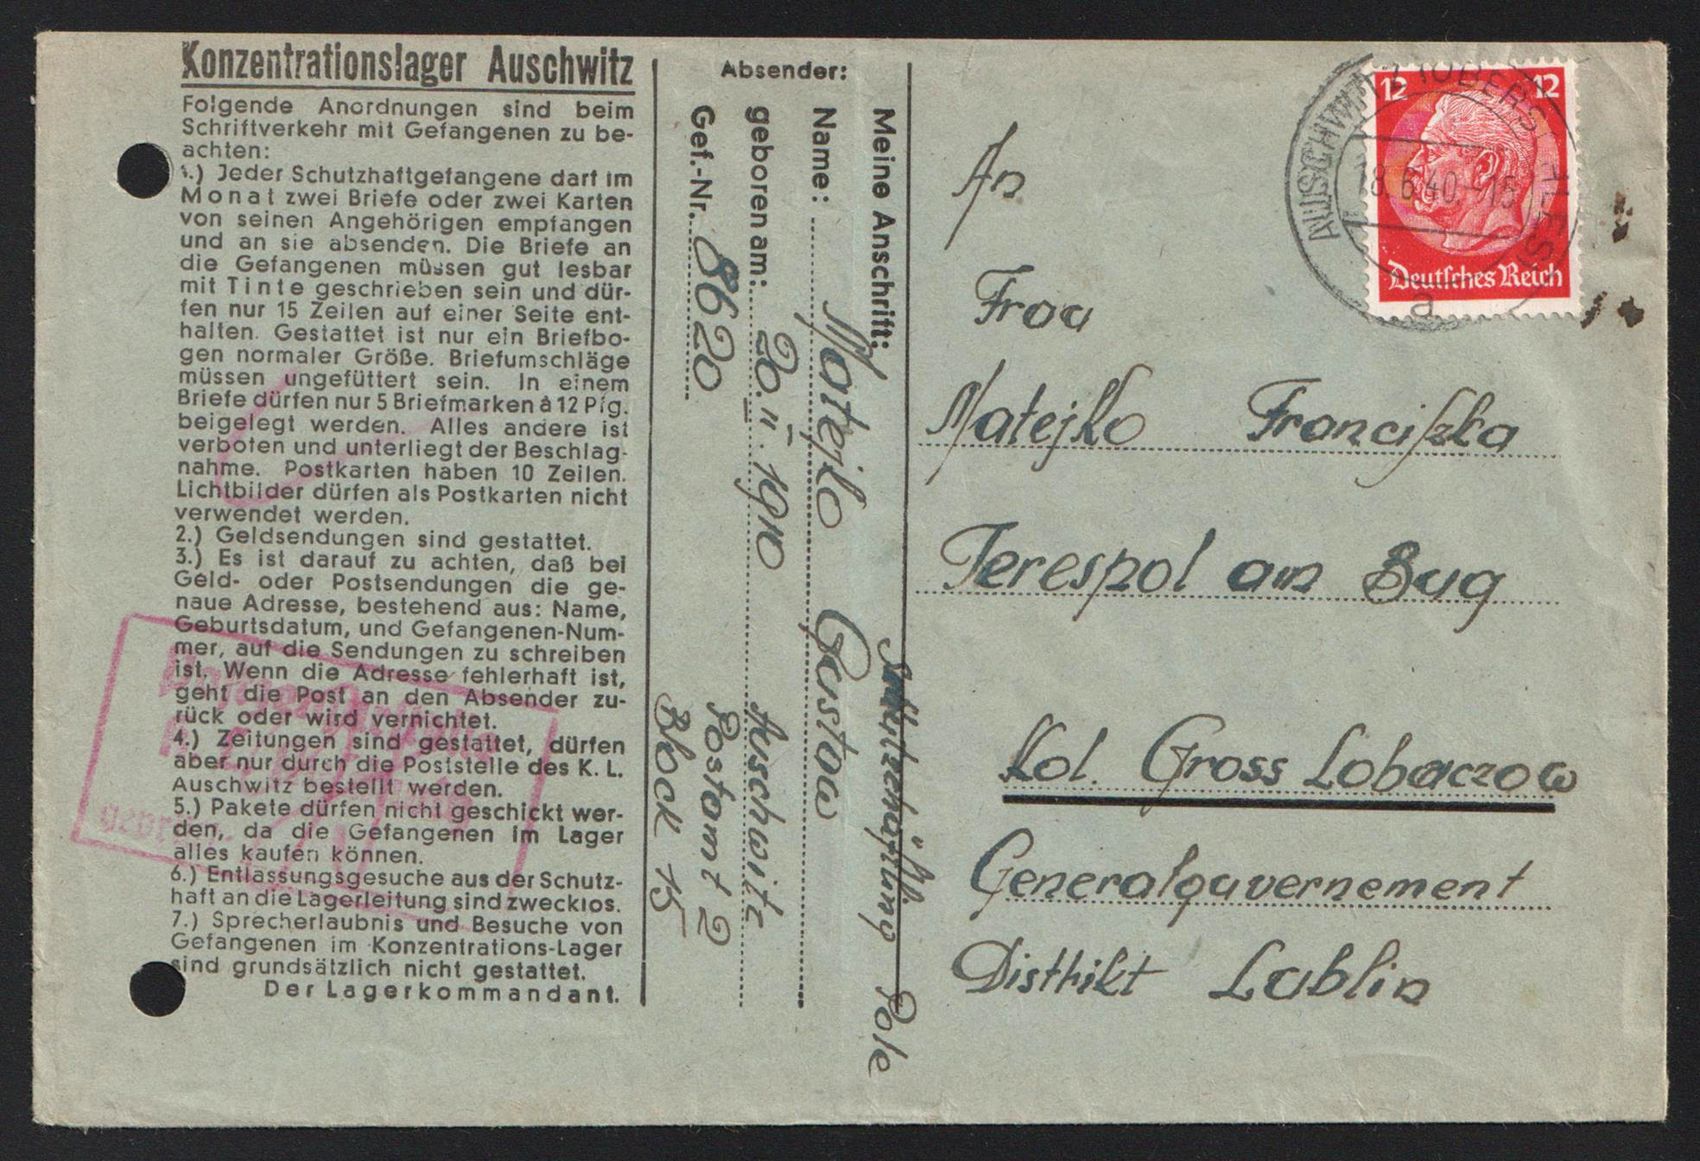 Konzentrationslager Auschwitz
Folgende Anordnungen sind beim
Schriftverkehr mit Gefangenen zu be-
achten:
1.) Jeder Schutzhaftgefangene darf im
Monat zwei Briefe oder zwei Karten
von seinen Angehörigen empfangen
und an sie absenden. Die Briefe an
die Gefangenen müssen gut lesbar
mit Tinte geschrieben sein und dür-
fen nur 15 Zeilen auf einer Seite ent-
halten. Gestattet ist nur ein Briefbo-
gen normaler Größe. Briefumschläge
müssen ungefüttert sein. In einem
Briefe dürfen nur 5 Briefmarken à 12 Pfg.
beigelegt werden. Alles andere ist
verboten und unterliegt der Beschlag-
nahme. Postkarten haben 10 Zeilen.
Lichtbilder dürfen als Postkarten nicht
verwendet werden.
2.) Geldsendungen sind gestattet.
3.) Es ist darauf zu achten, daß bei
Geld- oder Postsendungen die ge-
naue Adresse, bestehend aus: Name,
Geburtsdatum, und Gefangenen-Num-
mer, auf die Sendungen zu schreiben
ist. Wenn die Adresse fehlerhaft ist,
geht die Post an den Absender zu-
rück oder wird vernichtet.
4.) Zeitungen sind gestattet, dürfen
aber nur durch die Poststelle des K. L.
Auschwitz bestellt werden.
5.) Pakete dürfen nicht geschickt wer-
den, da die Gefangenen im Lager
alles kaufen können.
6.) Entlassungsgesuche aus der Schutz-
haft an die Lagerleitung sind zwecklos.
7.) Sprecherlaubnis und Besuche von
Gefangenen im Konzentrations-Lager
sind grundsätzlich nicht gestattet.
Der Lagerkommandant.
Absender:
Meine Anschrift:
Schutzhäftling Pole
Name: Matejko Gustaw
geboren am: 20. II. 1910 Auschwitz
Gef.-Nr. 8620 Postamt 2
Block 15
An
Frau
Matejko Franciszka
Terespol am Bug
Kol. Gross Lobaczow
Generalgouvernement
Distrikt Lublin
12 12
Deutsches Reich
AUSCHWITZ (OBERSCHLES)
18.6.40.-15
a